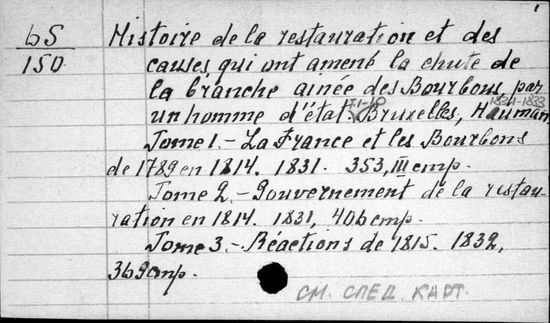 bS
150
Histoire de la restauration et des
causes qui ont amené la chute de
la branche ainée des Bourbons, par
un homme d'état. T.1-10 Bruxelles, Hauman, 1831-1833
Tome 1.- La France et les Bourbons
de 1789 en 1814. 1831. 353, III стр.
Tome 2.- Gouvernement de la restau-
ration en 1814. 1831, 406 стр.
Tome 3.- Réactions de 1815. 1832,
369 стр.
СМ. СПЕД. КАРТ.